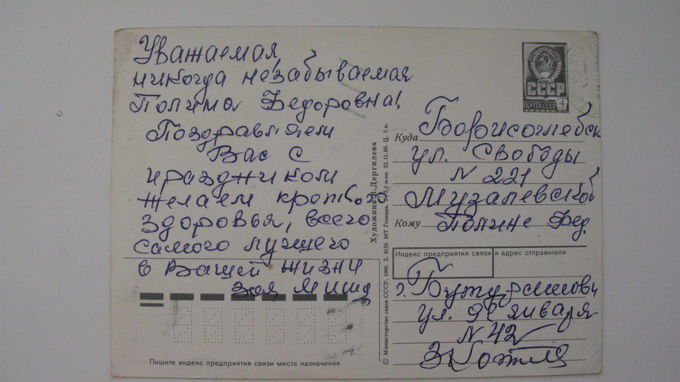 Уважаемая,
никогда незабываемая
Полина Федоровна!
Поздравляем
Вас с
праздником
желаем крепкого
здоровья, всего
самого лучшего
в Вашей жизни
Зоя Миш
Пишите индекс предприятия связи места назначения
Художник Л. Дергилева
© Министерство связи СССР, 1989.
СССР
ПОЧТА
4
Куда Борисоглебск
ул. Свободы
N 221
Музалевской
Кому Полине Фед
Индекс предприятия связи и адрес отправителя
г. Бутурлиновк
ул. 9 января
N 42